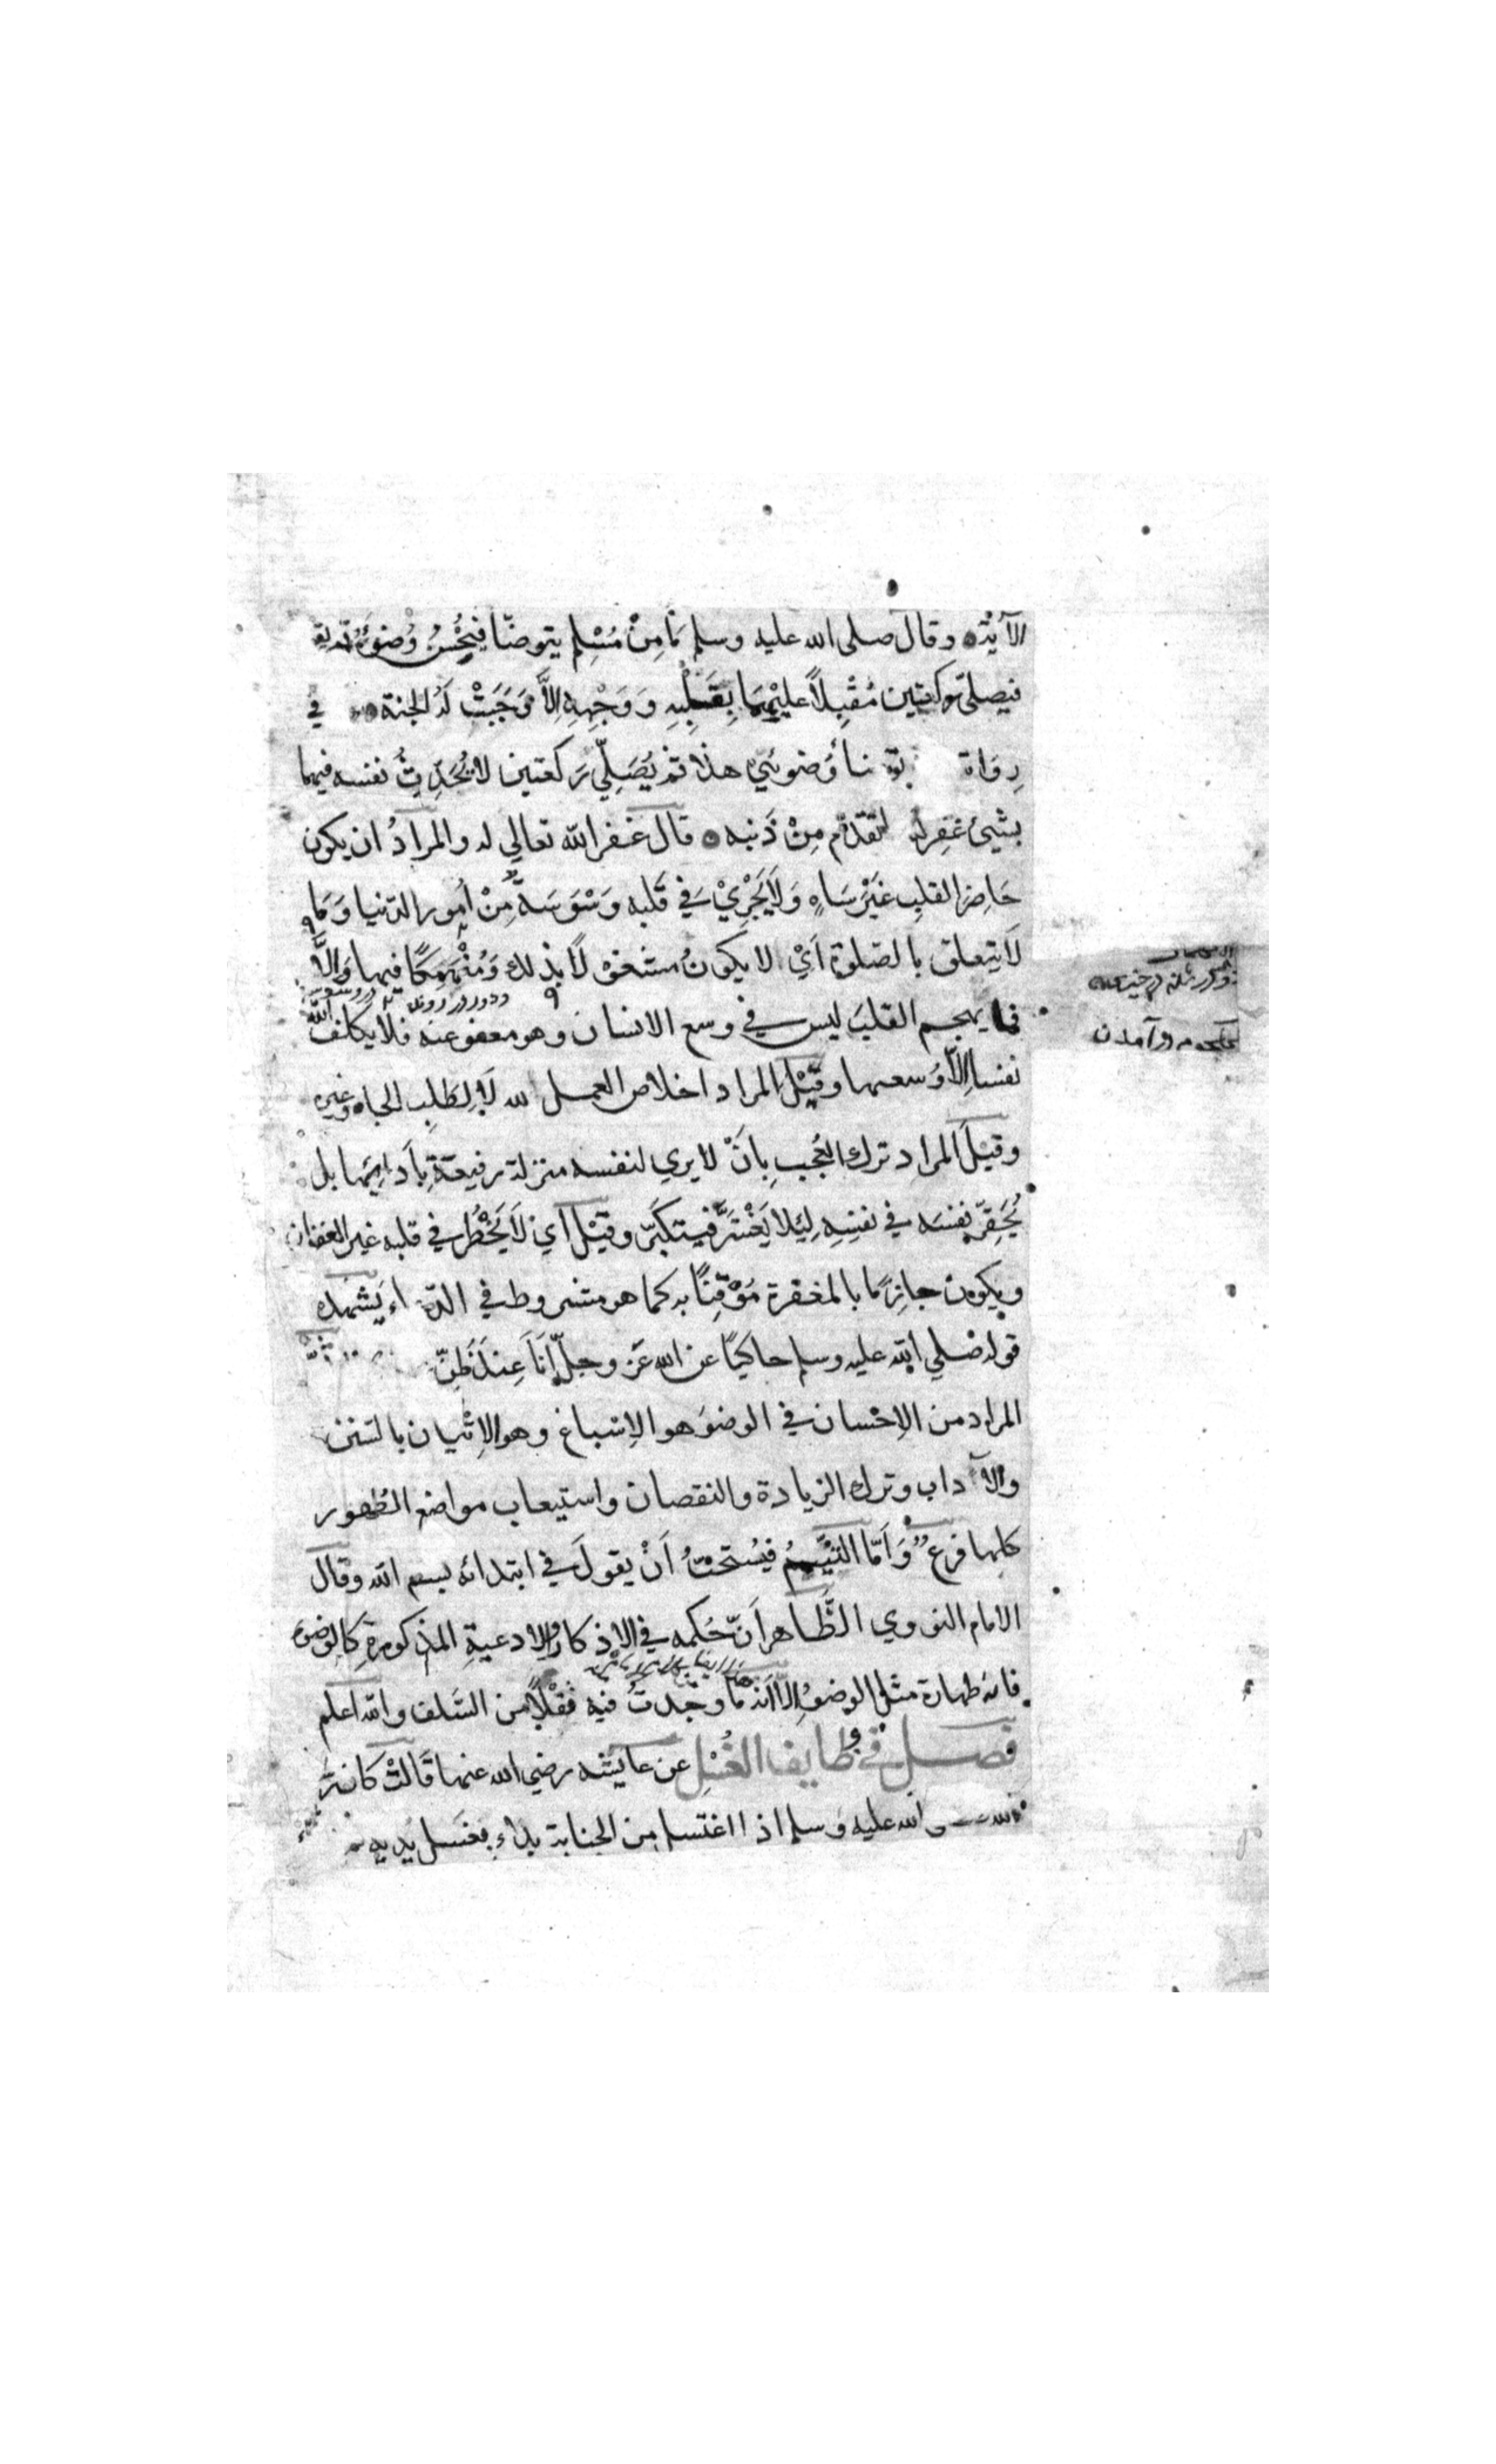 الآية وقال صلى الله عليه وسلم مَا مِنْ مُسْلِمٍ يتوضّأ فيُحْسِنُ وُضوءَهُ ثم يقوم
فيصلّي ركعتين مُقْبِلاً عليْهِمَا بِقَلْبِهِ وَوَجْهِهِ إلاَّ وَجَبَتْ لَهُ الجنة في
رِوَاة وُضوئي هذا ثم يُصَلِّي رَكعتين لا يُحَدِّثُ نفسه فيهما
بشيئ غفرله تقدّم مِنْ ذَنبه قال غفر الله تعالي له والمرادُ ان يكون
حَاضِرَ القلبِ غَيْرَ سَاهٍ وَلاَ يَجْرِيْ في قَلبه وَسْوَسَةٌ مِنْ اُمور الدّنيا وَمَا
لاَ يتعلق بالصّلوة اَيْ لا يكونُ مشتغلاً بذلك وَمُنْهَمِكًا فيها وَإلاَّ
فما يهجم القلبَ ليس في وسع الانسان وهو معفو عنه فلا يكلف اللّٰهُ
نفسا إلاّ وُسعها وقيْلَ المراد اخلاص العمل لله لاَ لِطَلبِ الجاه وغيره
وقيْلَ المراد ترك العُجبِ بِاَنْ لا يري لنفسه منزلة رفيعةً بِأدائِهَا بل
يُحَقِّرُ نفسَه في نفسِهِ لِيَلا يَغْتَرَّ فيتكبّر وقيْلَ اَي لاَ يَخْطُر في قلبه غير الغفران
ويكون جازمًا بالمغفرة مُوْقِنًا به كما هو مشروط في الدّ اء يَشْهَدُ
قوله صلي الله عليه وسلم حاكيًا عن الله عَزّ وجلّ اَنَا عِندَ ظَنِّ
المراد من الاِحْسان في الوضوء هو الاِسْباغ وهو الاِتْيان بالسّنن
والآداب وترك الزيادة والنقصان واستيعاب مواضع الطُهور
كلها فرع وَاَمّا التَيَمُّمُ فيُستحبُّ اَنْ يقولَ في ابتدائه بسم الله وقال
الامام النووي الظَّاهر اَنّ حُكمه في الاذكار والادعيةِ المذكورةِ كالوضوء
فانه طهارة مثل الوضوءِ إلاّ اَنه مَا وجَدتُ فيه نَقْلاً من السّلف والله اعلم
فصل في وظايف الغُسْلِ عن عايشه رضي الله عنها قَالَتْ كانَ
الله عليه وَسلم اذا اغتسل من الجنابة بداء بغَسل يَديه
در آمدن